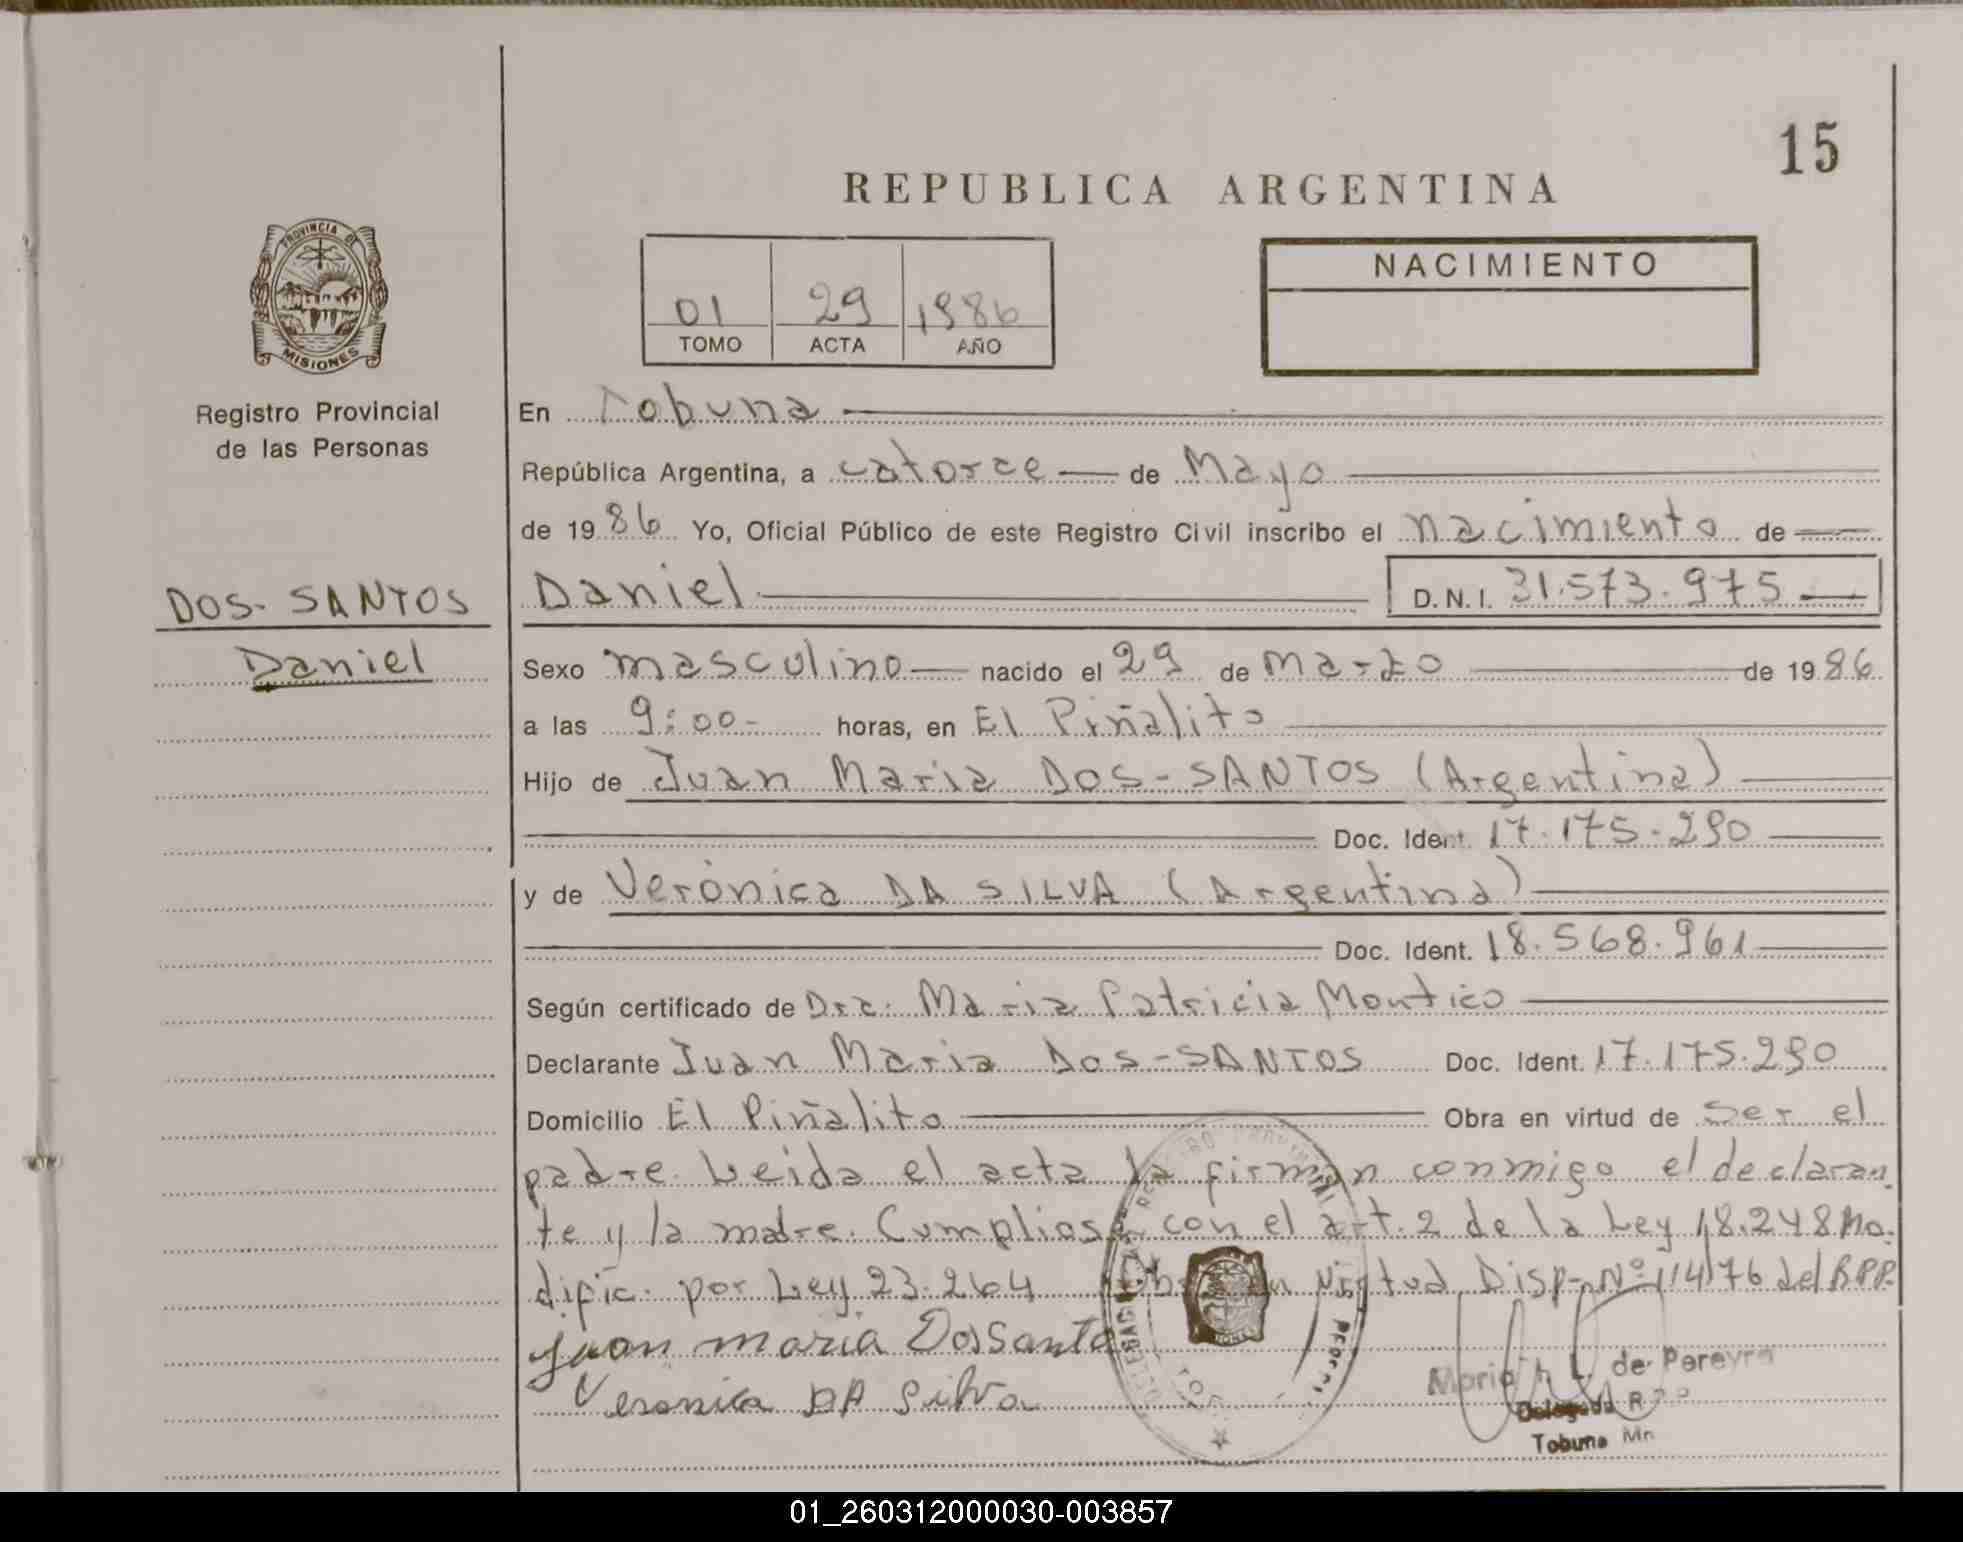 15
REPUBLICA ARGENTINA
PROVINCIA DE
MISIONES
Registro Provincial
de las Personas
NACIMIENTO
01 29 1986
TOMO ACTA AÑO
En Tobuna
República Argentina, a catorce de Mayo
de 1986 Yo, Oficial Público de este Registro Civil inscribo el nacimiento de
DOS-SANTOS
Daniel
Daniel D.N.I. 31.573.975
Sexo masculino nacido el 29 de marzo de 1986
a las 9:00- horas, en El Piñalito
Hijo de Juan Maria DOS-SANTOS (Argentina)
Doc. Ident. 17.175.290
y de Verónica DA SILVA (Argentina)
Doc. Ident. 18.568.961
Según certificado de Dra. Maria Patricia Montico
Declarante Juan Maria DOS-SANTOS Doc. Ident. 17.175.290
Domicilio El Piñalito Obra en virtud de ser el
padre. Leida el acta la firman conmigo el declaran
te y la madre. Cumplios con el art. 2 de la Ley 18.248 Mo
dific. por Ley 23.264 virtud Disp. Nº 114/76 del R.P.P.
Juan maria Dos Santo
Veronica DA Silva
Maria L. de Pereyra
Delegada R.P.P.
Tobuna Mn
01_260312000030-003857